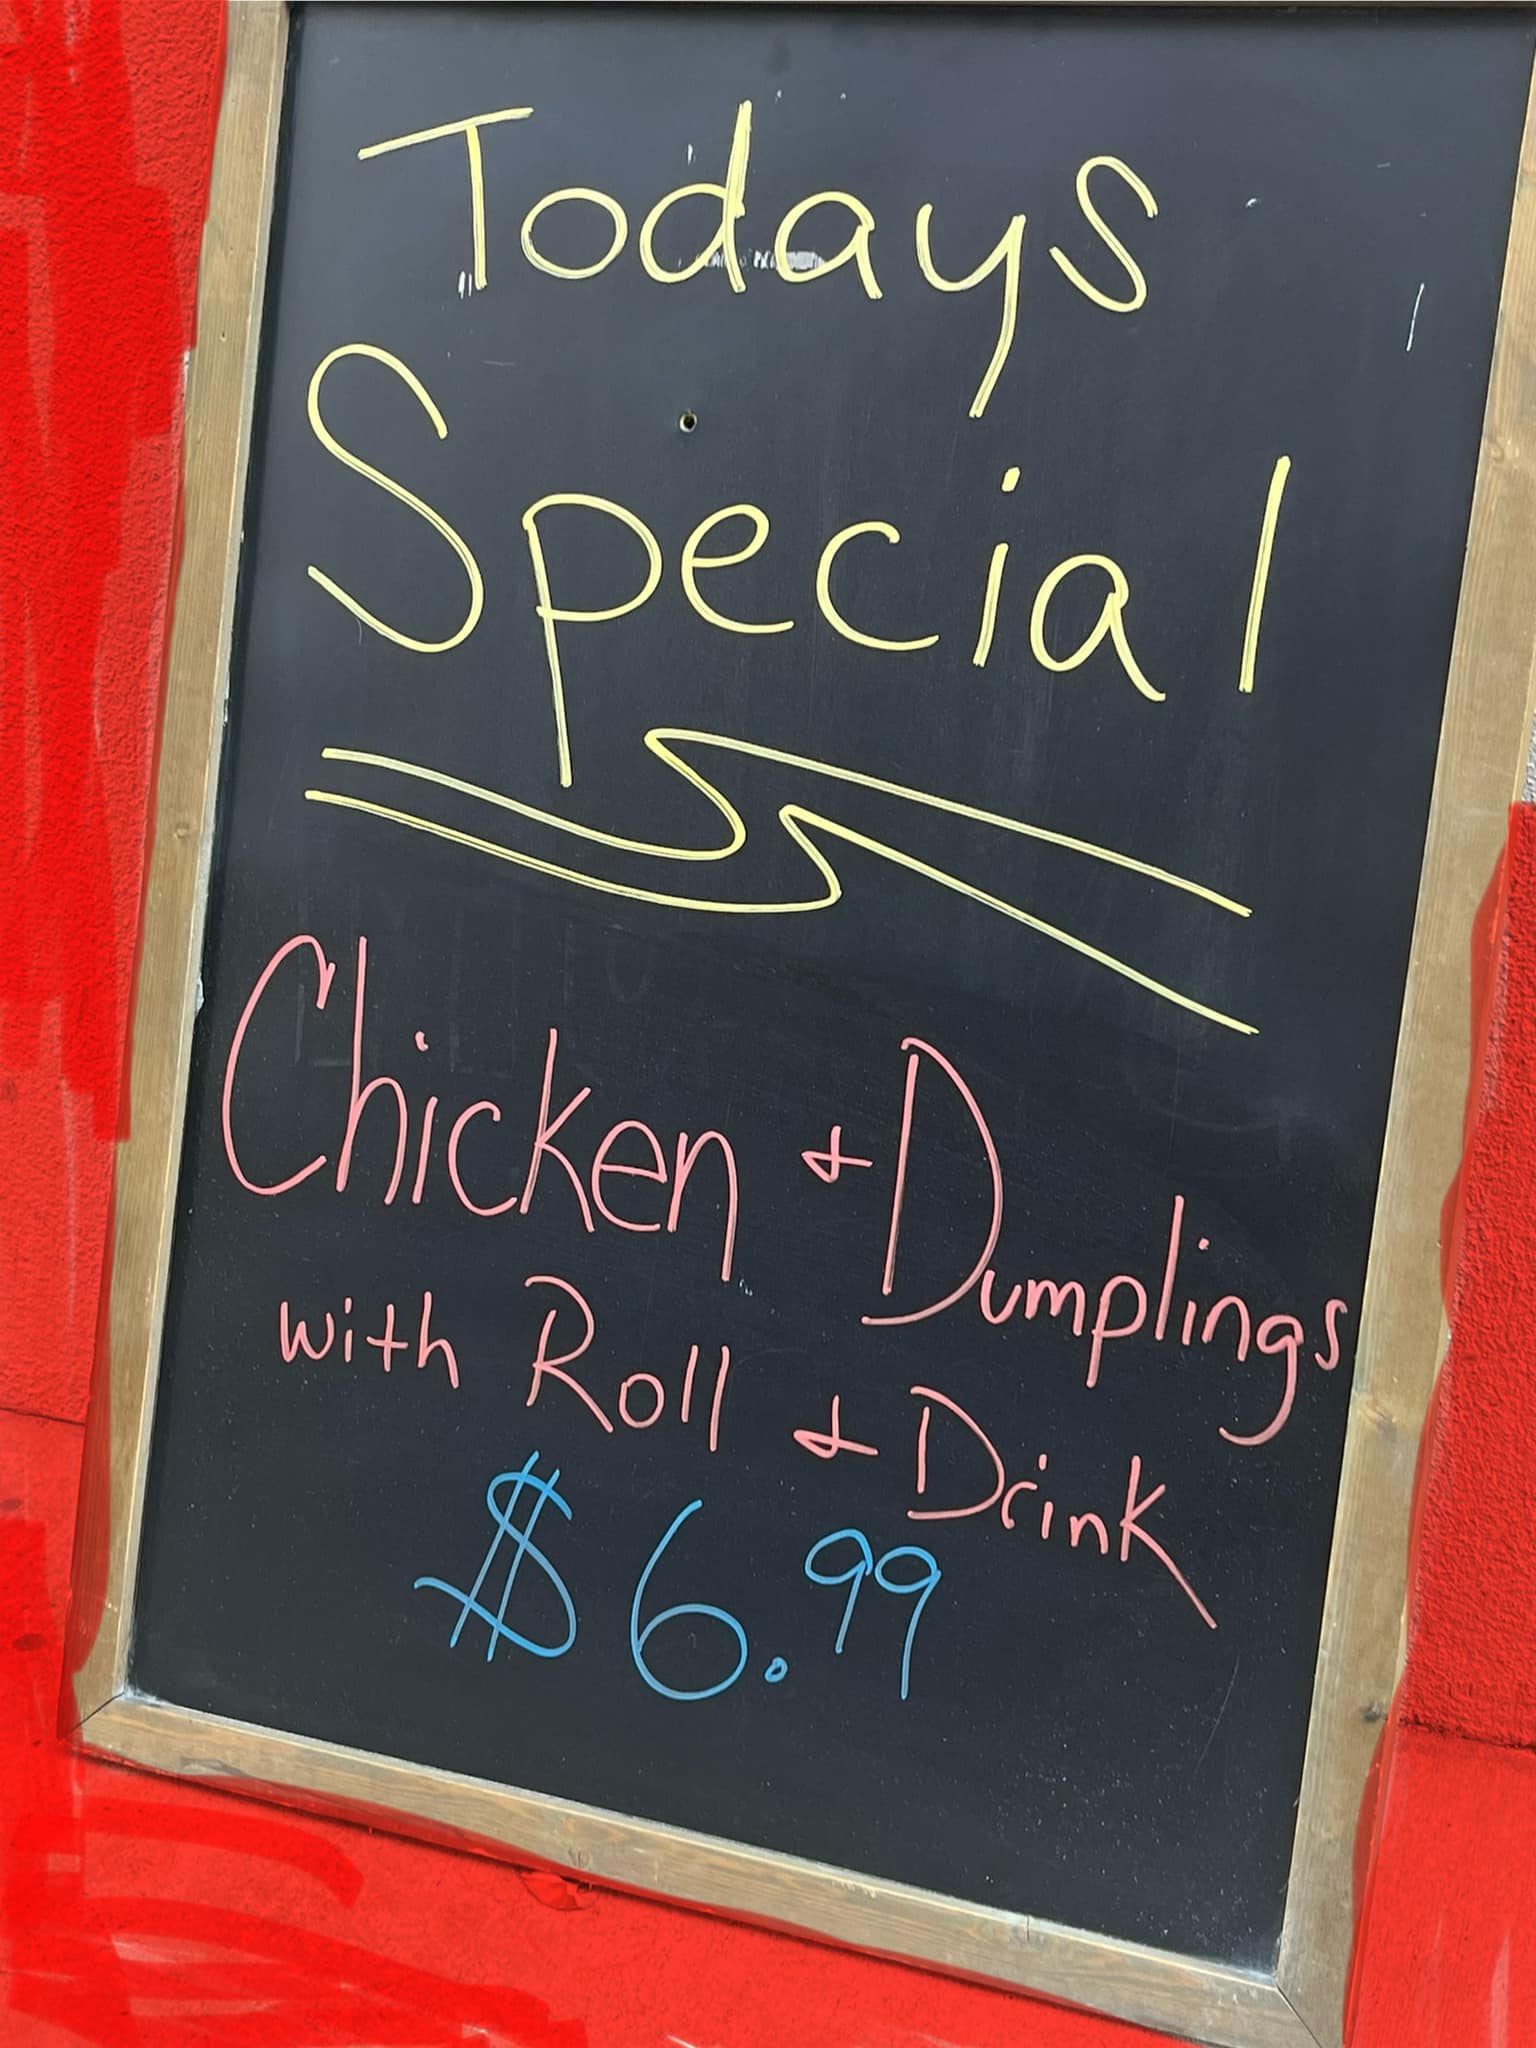 Todays
Special
Chicken & Dumplings
with Roll & Drink
$6.99